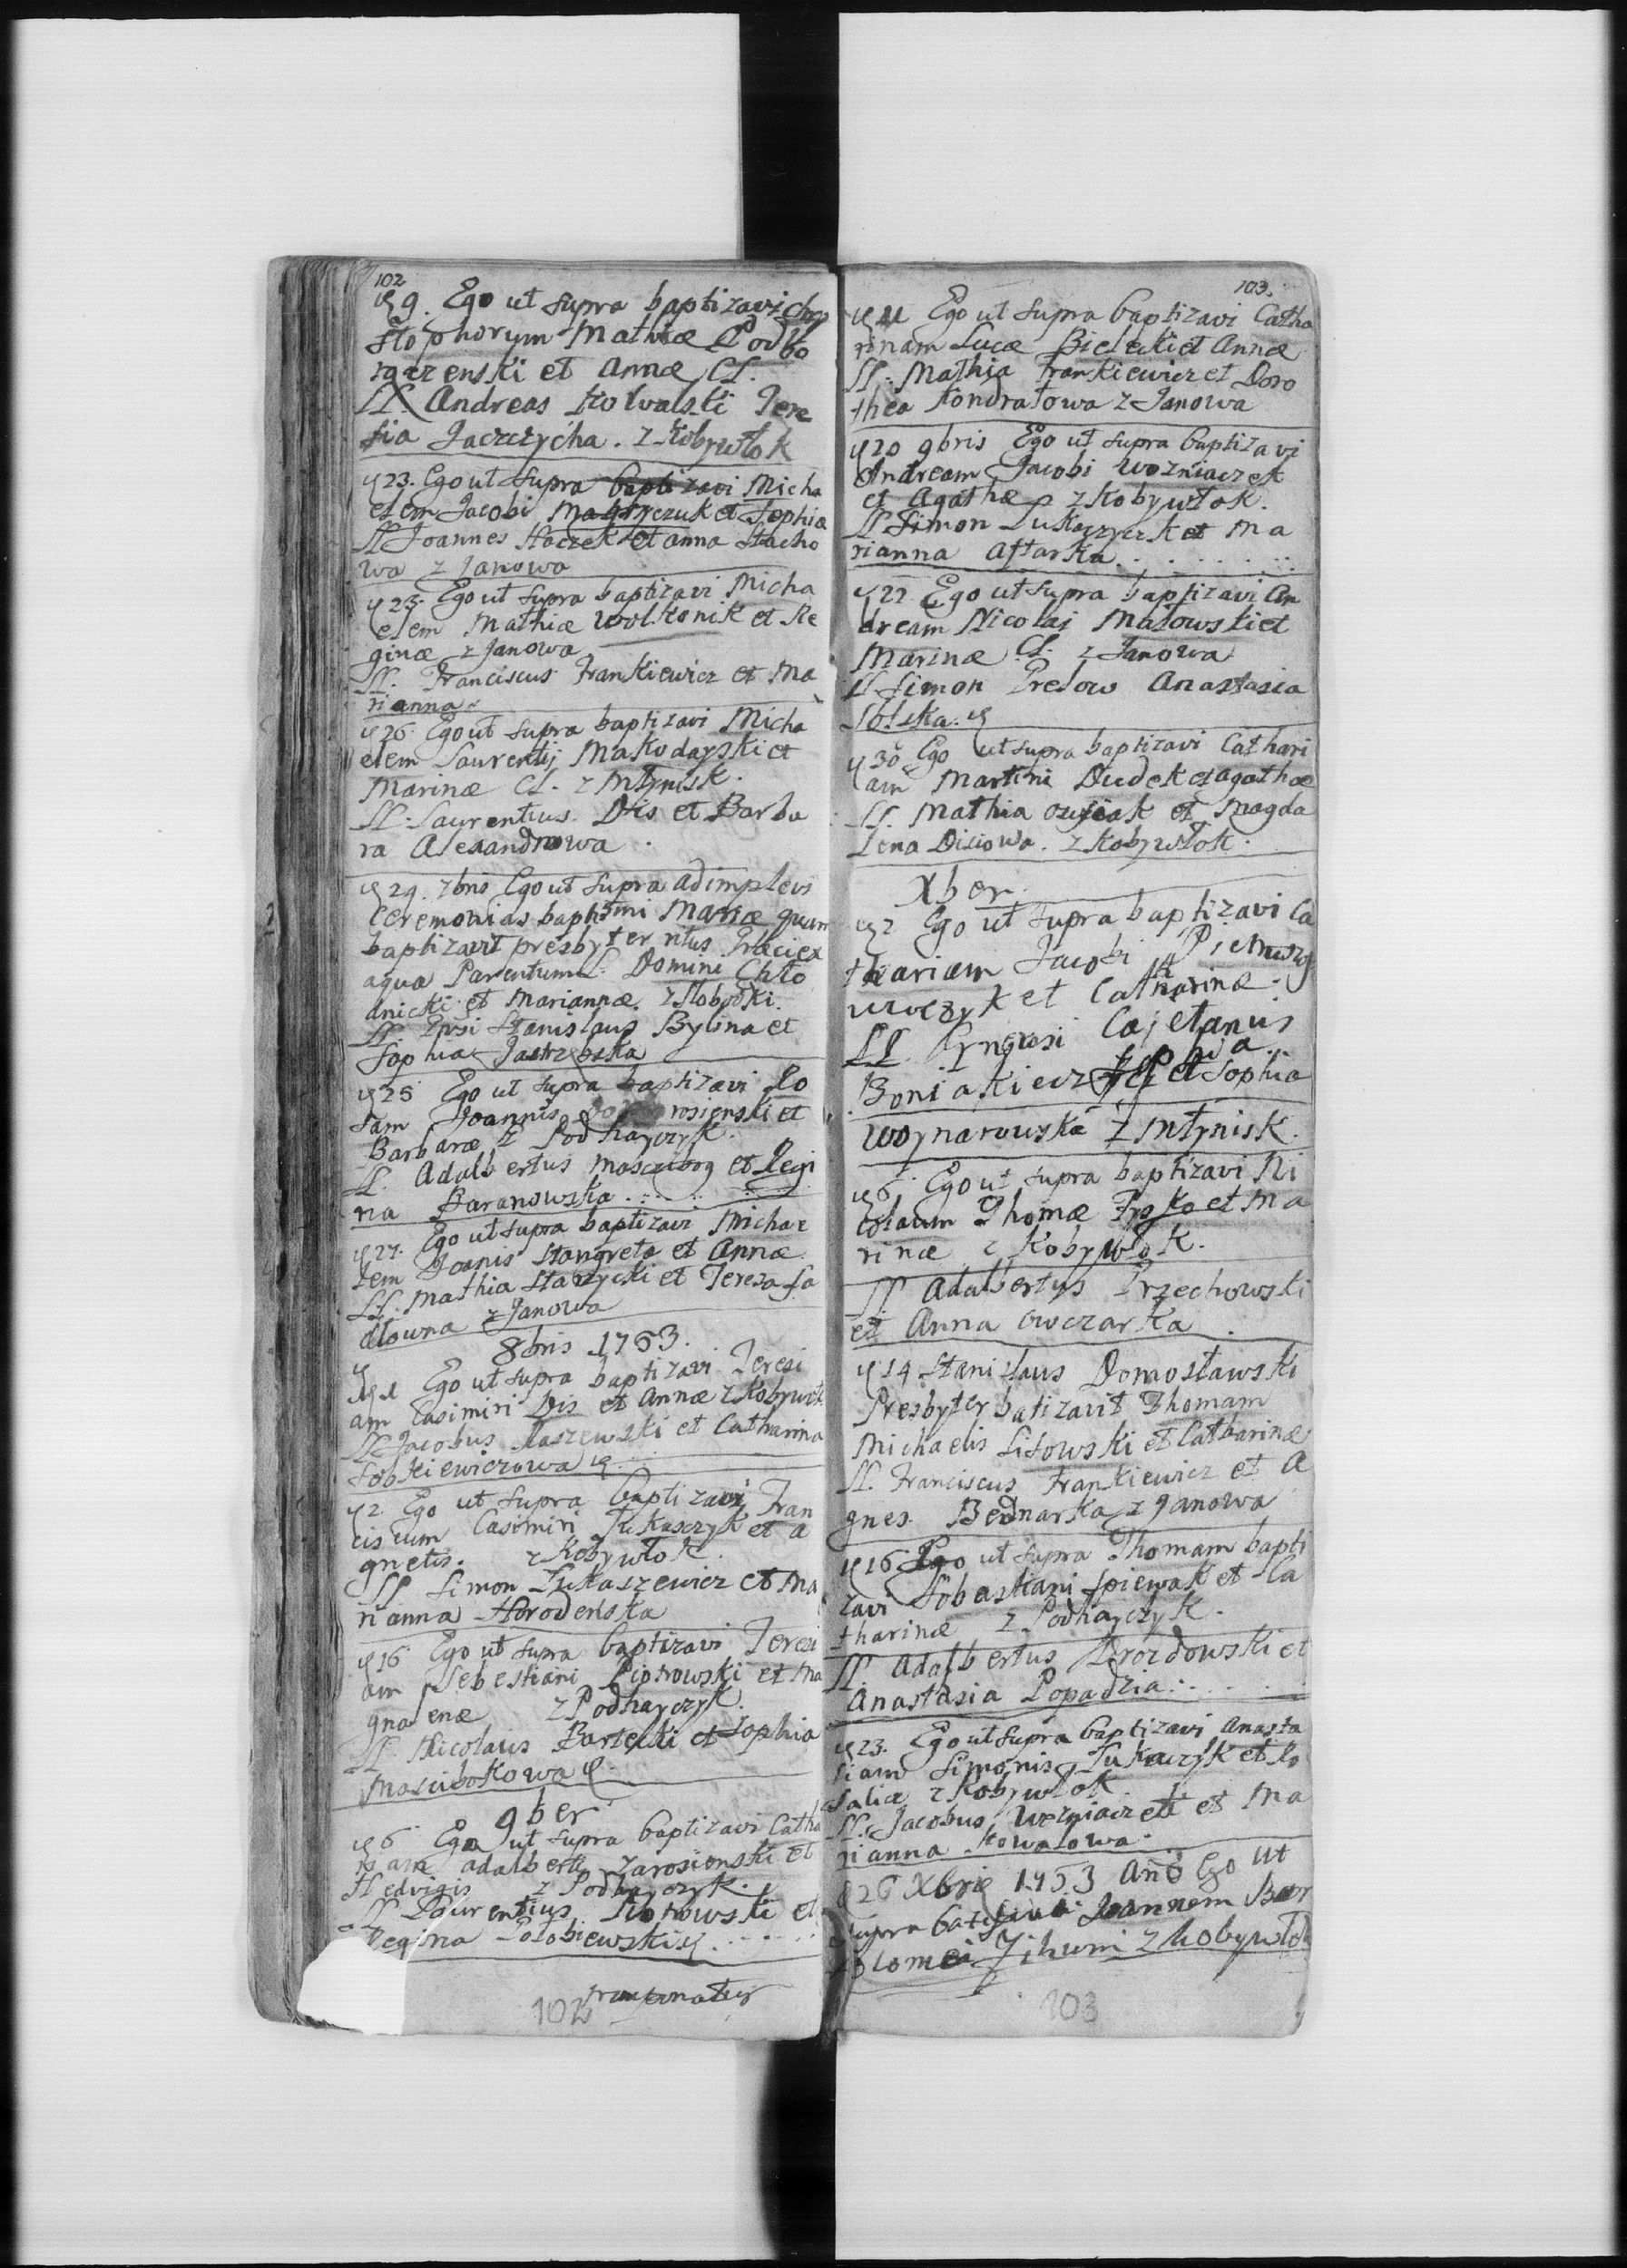 102
9. Ego ut supra baptizavi Chry
stophorum Mathiæ Podbo
rgzenski et Annæ CL.
LL. Andreas Kowalski Tere
sia Jaczczycha. z Kobywłok
23. Ego ut supra baptizavi Micha
elem Jacobi et Sophiæ
LL Joannes Haczek et anna Stacho
wa z Janowa
23. Ego ut supra baptizavi Micha
elem Mathiæ Wolkonik et Re
ginæ z Janowa
LL. Franciscus Frankiewicz et Ma
rianna
26. Ego ut supra baptizavi Micha
elem Laurentij Makodayski et
Marinæ CL. z Młynisk.
LL. Laurentius Dis et Barba
ra Alexandrowa.
29. 7bris Ego ut supra adimplevi
Ceremonias baptismi Mariæ quam
baptizavit presbyter ritus Græci ex
aqua Parentum L. Domini Chło
dnicki et Mariannæ z Słobodki.
LL. Grsi Stanislaus Bylina et
Sophia Jastrzebska
25 Ego ut supra baptizavi Ro
sam Joannis rosienski et
Barbaræ z Podhayczyk.
LL. Adalbertus et Regi
na Baranowska.....
27. Ego ut supra baptizavi Michae
lem Joanis Stangreta et Annæ
LL. Mathia Starzycki et Teresa Sa
dłowna z Janowa
8bris 1753.
1 Ego ut supra baptizavi Teresi
am Casimiri Dis et Annæ z Kobywłok
LL Jacobus Raszewski et Catharina
Sobkiewiczowa
2. Ego ut supra baptizavi Fran
ciscum Casimiri Łukasczyk et A
gnetis. z Kobywłok
LL Simon Łukaszewicz et Ma
rianna Horodenska
16 Ego ut supra baptizavi Teresi
am Sebestiani Piotrowski et Ma
gnalenæ z Podhayczyk.
LL. Nicolaus Bartecki et Sophia
Mascibokowa
9ber
6 Ego ut supra baptizavi Catha
ri am adalberti zarosienski et
Hedvigis z Podhayczyk.
LL Laurentius Piotrowski et
Regina Gołobiewski.....
102
103.
11 Ego ut supra baptizavi Catha
rinam Lucæ Bielecki et Annæ
LL. Mathia Frankiewicz et Doro
thea Kondratowa z Janowa
20 9bris Ego ut supra baptizavi
Andream Jacobi Wozniaczek
et Agathæ z Kobywłok.
LL Simon Lukaszczyk et Ma
rianna
22 Ego ut supra baptizavi An
dream Nicolai Małowski et
Marinæ CL. z Janowa
LL Simon Anastasia
Solska.
30 Ego ut supra baptizavi Cathari
am Martini Dudek et agathæ
LL. Mathia et Magda
lena Disiowa. z Kobywłok.
Xber
2 Ego ut supra baptizavi Ca
thariam Jacobi
et Catharinæ.
LL. Gyngrosi Cajetanus
Boniakiewicz et Sophia
Woynarowska z Młynisk.
6. Ego ut supra baptizavi Ni
colaum Thomæ et Ma
rinæ z Kobywłok.
LL Adalbertus Przechowski
et Anna Owczarka
14 Stanislaus Domosławski
Presbyter batizavit Thomam
Michaelis Lisowski et Catharinæ
LL. Franciscus Frankiewicz et A
gnes. Bednarka z Janowa
16 Ego ut supra Thomam bapti
zavi Sobastiani Spiewak et Ca
tharinæ z Podhayczyk.
LL. Adalbertus Drozdowski et
Anastasia Popadzia.....
23. Ego ut supra baptizavi Anasta
siam Simonis Łukaczyk et Ro
saliæ z Kobywłok
LL. Jacobus Wozniaczek et Ma
rianna Kowalowa.
26 Xbris 1753 Ano Ego ut
supra Joannem Bar
tolomei z Kobywłok
103